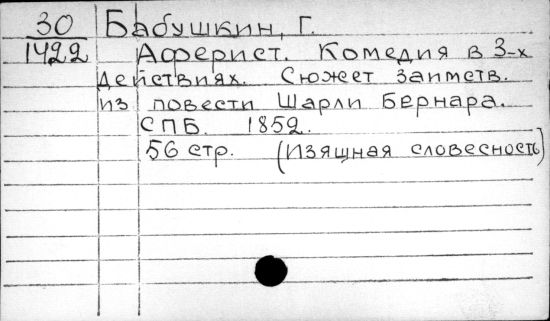 30 Бабушкин, Г.
1422 Аферист. Комедия в 3-х
действиях. Сюжет заимств.
из повести Шарли Бернара.
СПБ. 1852.
56 стр. (Изящная словесность)